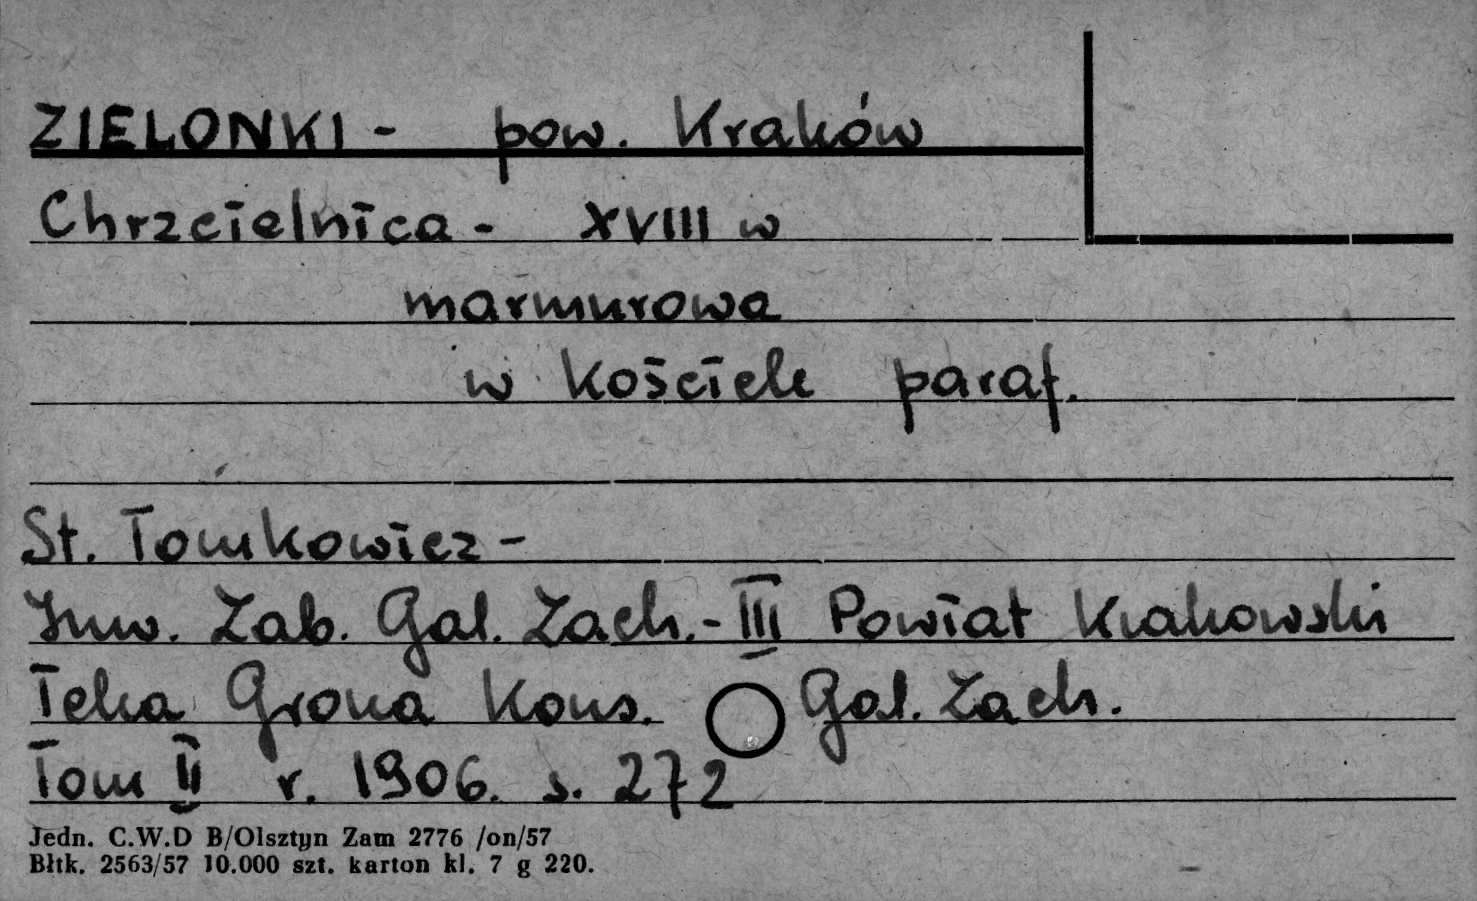 ZIELONKI - pow. Kraków
Chrzcielnica - XVIII w
marmurowa
w kościele paraf.
St. Tomkowicz -
Inw. Zab. Gal. Zach. - III Powiat Krakowski
Teka Grona Kons. Gal. Zach.
Tom II r. 1906. s. 272
Jedn. C.W.D B/Olsztyn Zam 2776 /on/57
Błtk. 2563/57 10.000 szt. karton kl. 7 g 220.